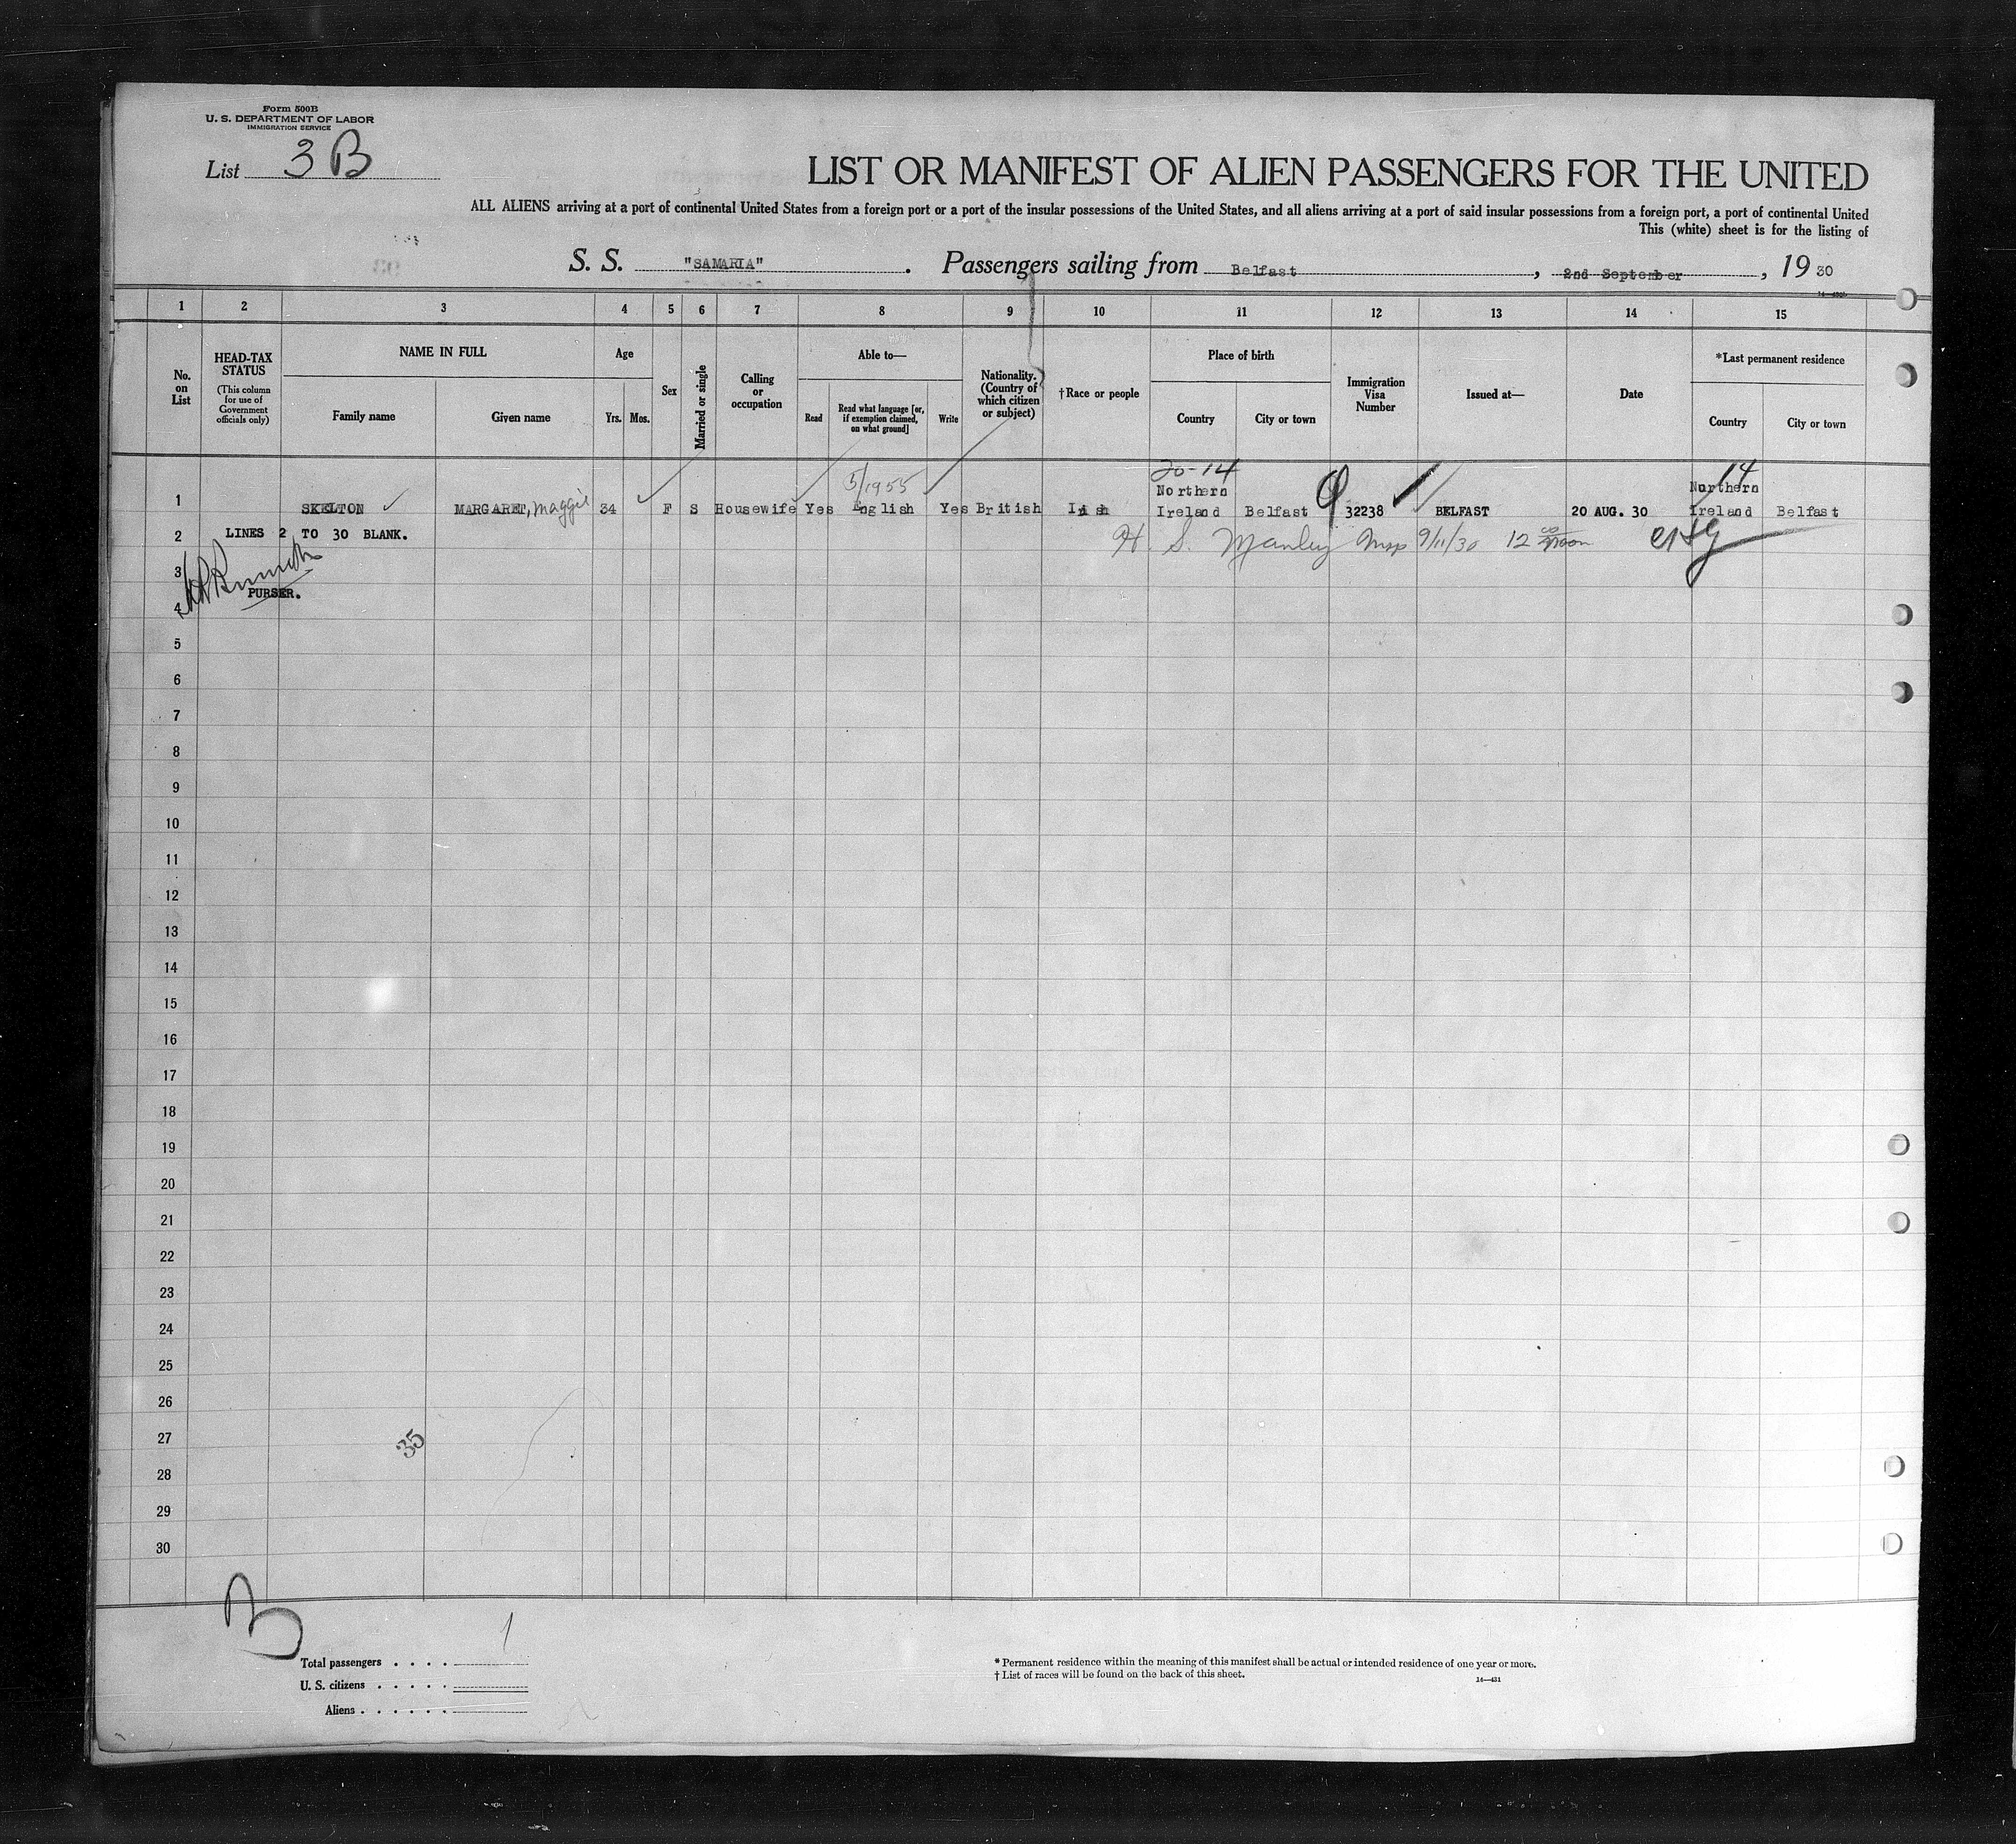 Form 500B
U. S. DEPARTMENT OF LABOR
IMMIGRATION SERVICE
List 3 B
LIST OR MANIFEST OF ALIEN PASSENGERS FOR THE UNITED
ALL ALIENS arriving at a port of continental United States from a foreign port or a port of the insular possessions of the United States, and all aliens arriving at a port of said insular possessions from a foreign port, a port of continental United
This (white) sheet is for the listing of
S. S. "SAMARIA" . Passengers sailing from Belfast , 2nd September , 19 30
1 2 3 4 5 6 7 8 9 10 11 12 13 14 15
No. on List
HEAD-TAX STATUS
(This column for use of Government officials only)
NAME IN FULL
Family name
Given name
Age
Yrs. Mos.
Sex
Married or single
Calling or occupation
Able to—
Read
Read what language [or, if exemption claimed, on what ground]
Write
Nationality. (Country of which citizen or subject)
†Race or people
Place of birth
Country
City or town
Immigration Visa Number
Issued at—
Date
*Last permanent residence
Country
City or town
5/1955 20-14 14
1 SKELTON MARGARET, Maggie 34 F S Housewife Yes English Yes British Irish Northern Ireland Belfast 32238 BELFAST 20 AUG. 30 Northern Ireland Belfast
2 LINES 2 TO 30 BLANK. H. S. Manley Insp 9/11/30 12 noon
3
PURSER.
4
5
6
7
8
9
10
11
12
13
14
15
16
17
18
19
20
21
22
23
24
25
26
27
35
28
29
30
Total passengers . . . . 1
U. S. citizens . . . . .
Aliens . . . . . .
* Permanent residence within the meaning of this manifest shall be actual or intended residence of one year or more.
† List of races will be found on the back of this sheet.
14—431